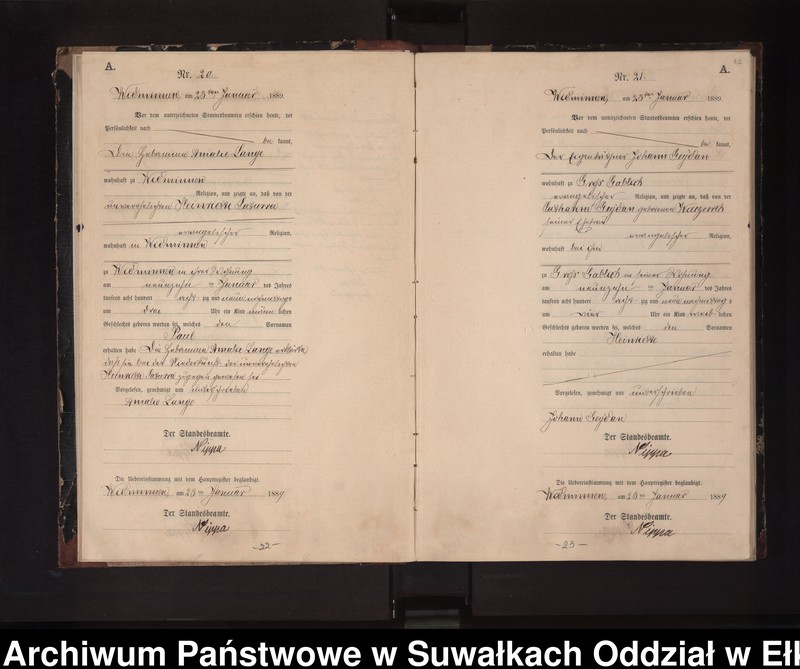 A.
Nr. 20.
Widminnen am 25ten Januar 1889.
Vor dem unterzeichneten Standesbeamten erschien heute, der
Persönlichkeit nach
be kannt,
Die Hebamme Amalie Lange
wohnhaft zu Widminnen
Religion, und zeigte an, daß von der
unverehelichten Heinriette
evangelischer Religion,
wohnhaft in Widminnen
zu Widminnen in ihrer Wohnung
am neunzehn ten Januar des Jahres
tausend acht hundert acht zig und neun nachmittags
um drei Uhr ein Kind männ lichen
Geschlechts geboren worden sei, welches den Vornamen
Paul
erhalten habe Die Hebamme Amalie Lange erklärte
daß sie bei der Niederkunft der unverehelichten
zugegen gewesen sei
Vorgelesen, genehmigt und unterschrieben
Amalie Lange
Der Standesbeamte.
Nippa
Die Uebereinstimmung mit dem Hauptregister beglaubigt.
Widminnen, am 25ten Januar 1889
Der Standesbeamte.
Nippa
-22-
A.
Nr. 21.
Widminnen, am 25ten Januar 1889.
Vor dem unterzeichneten Standesbeamten erschien heute, der
Persönlichkeit nach
be kannt,
Der Eigenkäthner Johann Gejdan
wohnhaft zu Groß Gablick
evangelischer Religion, und zeigte an, daß von der
Gejdan geborenen
seiner Ehefrau
evangelischer Religion,
wohnhaft bei ihm
zu Groß Gablick in seiner Wohnung
am neunzehn ten Januar des Jahres
tausend acht hundert acht zig und neun nachmittag s
um vier Uhr ein Kind weib lichen
Geschlechts geboren worden sei, welches den Vornamen
Heinriette
erhalten habe
Vorgelesen, genehmigt und unterschrieben
Johann Gejdan
Der Standesbeamte.
Nippa
Die Uebereinstimmung mit dem Hauptregister beglaubigt.
Widminnen, am 25ten Januar 1889
Der Standesbeamte.
Nippa
-23-
Archiwum Państwowe w Suwałkach Oddział w Eł